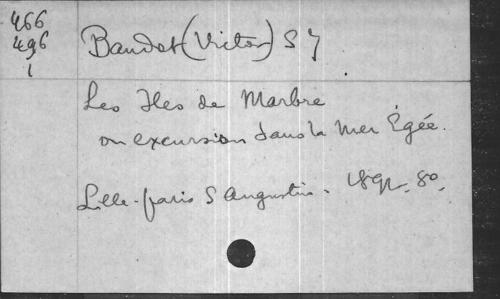 466
496
1
Baudot (Victor) S J
Les Iles de Marbre
ou excursion dans la Mer Égée.
Lille-paris S Augustin. 8o.